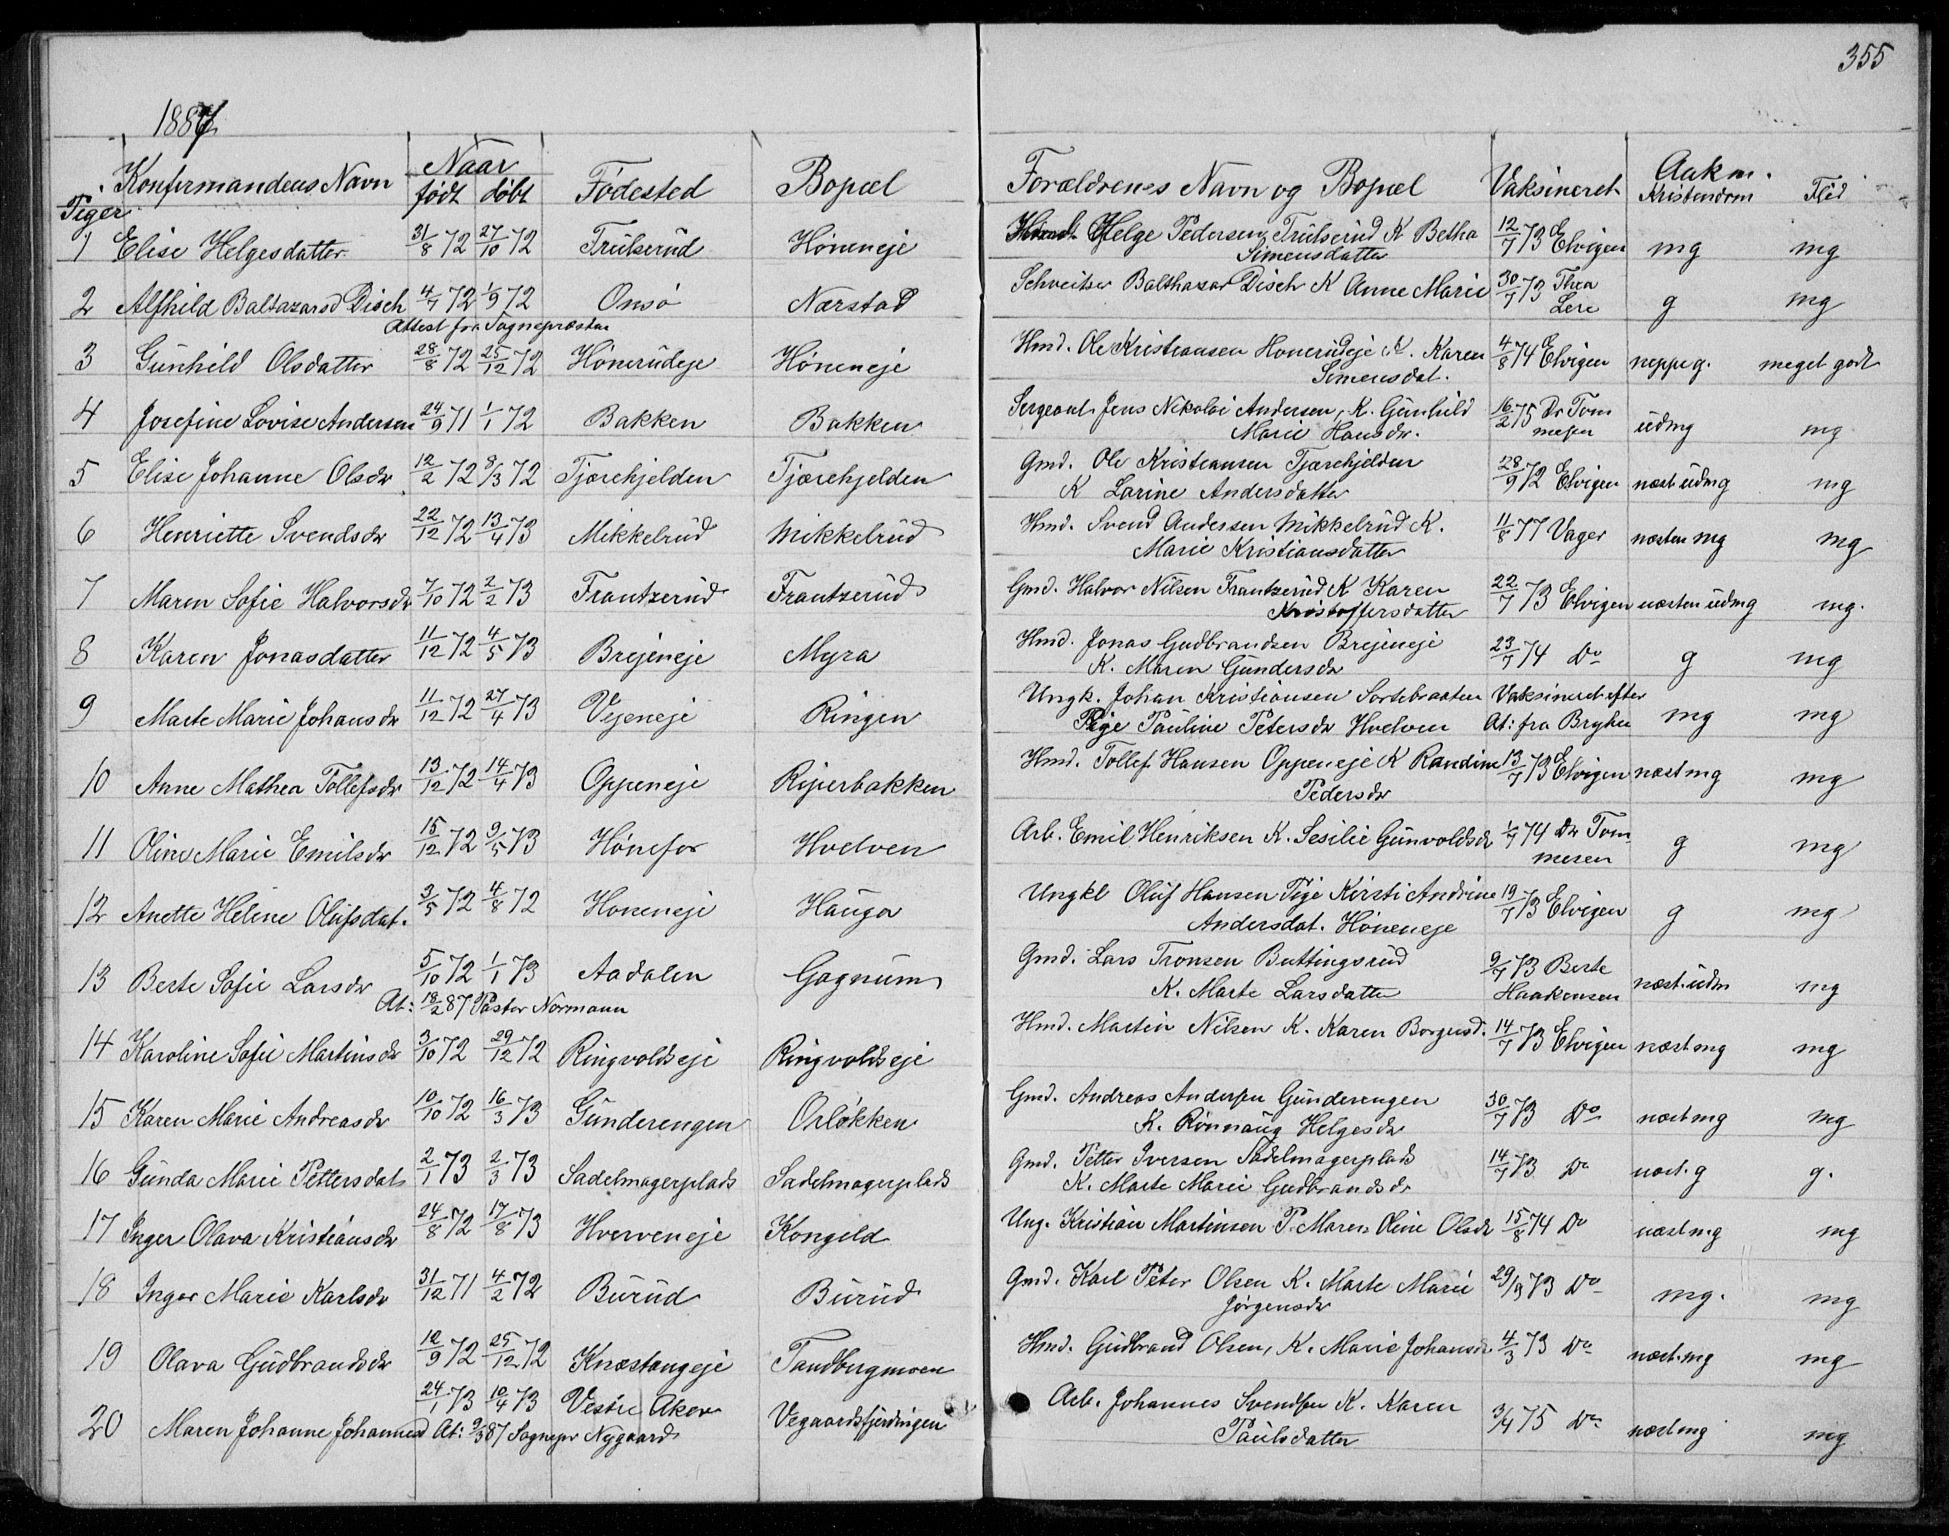 355
1887
Konfirmandens Navn Naar Fødested Bopæl Forældrenes Navn og Bopæl Vaksineret Aakm.
født døbt Kristendom Flid
Piger
1 Elise Helgesdatter 31/8 72 27/10 72 Trulserud Høneneje Helge Pedersen Trulserud K Betha 12/7 73 Elvigen mg mg
Simensdatter
2 Alfhild Baltazarsd Disch 4/7 72 1/9 72 Onsø Nærstad Schveitser Balthazar Disch K Anne Marie 30/7 73 Thea g mg
Attest fra Sognepræsten Lere
3 Gunhild Olsdatter 28/8 72 25/12 72 Hönerudeje Høneneje Hmd. Ole Kristiansen Honerudeje K. Karen 4/8 74 Elvigen neppe g. meget godt
Simensdat.
4 Josefine Lovise Andersen 24/9 71 1/1 72 Bakken Bakken Sergeant Jens Nikolai Andersen, K. Gunhild 16/2 75 Dr Tom udmg mg
Marie Hansdr. mesen
5 Elise Johanne Olsdr 12/2 72 8/3 72 Tjærehjelden Tjærehjelden Gmd. Ole Kristiansen Tjærehjelden 28/9 72 Elvigen næst udmg mg
K Larine Andersdatter
6 Henriette Svendsdr 22/12 72 13/4 73 Mikkelrud Mikkelrud Hmd. Svend Andersen Mikkelrud K. 11/8 77 Vager næsten mg mg
Marie Kristiansdatter
7 Maren Sofie Halvorsdr 7/10 72 2/2 73 Frantzerud Frantzerud Gmd. Halvor Nilsen Frantzerud K Karen 22/7 73 Elvigen næsten udmg mg.
Kristoffersdatter
8 Karen Jonasdatter 11/12 72 4/5 73 Brejeneje Myra Hmd. Jonas Gudbrandsen Brejeneje 23/7 74 Do g mg
K. Maren Gundersdr
9 Marte Marie Johansdr 11/12 72 27/4 73 Vejeneje Ringen Ungk. Johan Kristiansen Sortebraaten Vaksineret efter mg mg
Pige Pauline Petersdr Hvelven At: fra Bryhn
10 Anne Mathea Tollefsdr 13/12 72 14/4 73 Oppeneje Riperbakken Hmd. Tollef Hansen Oppeneje K Randine 13/7 73 Elvigen næst mg mg
Pedersdr
11 Oline Marie Emilsdr 15/12 72 9/5 73 Hönefos Hvelven Arb. Emil Henriksen K. Sesilie Gunvoldsdr 1/7 74 Dr Tom g mg
mesen
12 Anette Helene Olufsdat. 3/5 72 4/8 72 Honeneje Hauga Ungkl Oluf Hansen Pige Kirsti Andrine 19/7 73 Elvigen g mg
Andersdat. Høneneje
13 Berte Sofie Larsdr 5/10 72 1/1 73 Aadalen Gagnum Gmd. Lars Tronsen Buttingsrud 9/7 73 Berte næst. udm mg
At: 18/2 87 Pastor Normann K. Marte Larsdatter Haakensen
14 Karoline Sofie Martinsdr 3/10 72 29/12 72 Ringvoldseje Ringvoldseje Hmd. Martin Nilsen K. Karen Borgersd. 14/7 73 Elvigen næst mg mg
15 Karen Marie Andreasdr 10/10 72 16/3 73 Gunderengen Orløkken Gmd. Andreas Andersen Gunderengen 30/7 73 Do næst mg mg
K. Rönnaug Helgesdr
16 Gunda Marie Pettersdat 2/1 73 2/3 73 Sadelmagerplads Sadelmagerplads Gmd. Petter Iversen Sadelmagerplads 14/7 73 Do næst. g g.
K. Marte Marie Gudbrandsdr
17 Inger Olava Kristiansdr 24/8 72 17/8 73 Hverveneje Kongeld Ung. Kristian Martinsen P. Maren Oline Olsdr 15/8 74 Do næst mg mg
18 Inger Marie Karlsdr 31/12 71 4/2 72 Burud Burud Gmd. Karl Peter Olsen K. Marte Marie 29/9 73 Do mg. mg
Jörgensdr
19 Olava Gudbrandsdr 12/9 72 25/12 72 Knæstangeje Tandbergmoen Hmd. Gudbrand Olsen, K. Marie Johansdr 4/3 73 Do næst. mg mg
24/1 73 10/4 73 Vestre Aker Arb. Johannes Svendsen K. Karen
20 Maren Johanne Johannesd At: 9/3 87 Sognepr Nygaard Vegaardsfjerdingen Paulsdatter 3/9 75 Do næst mg mg